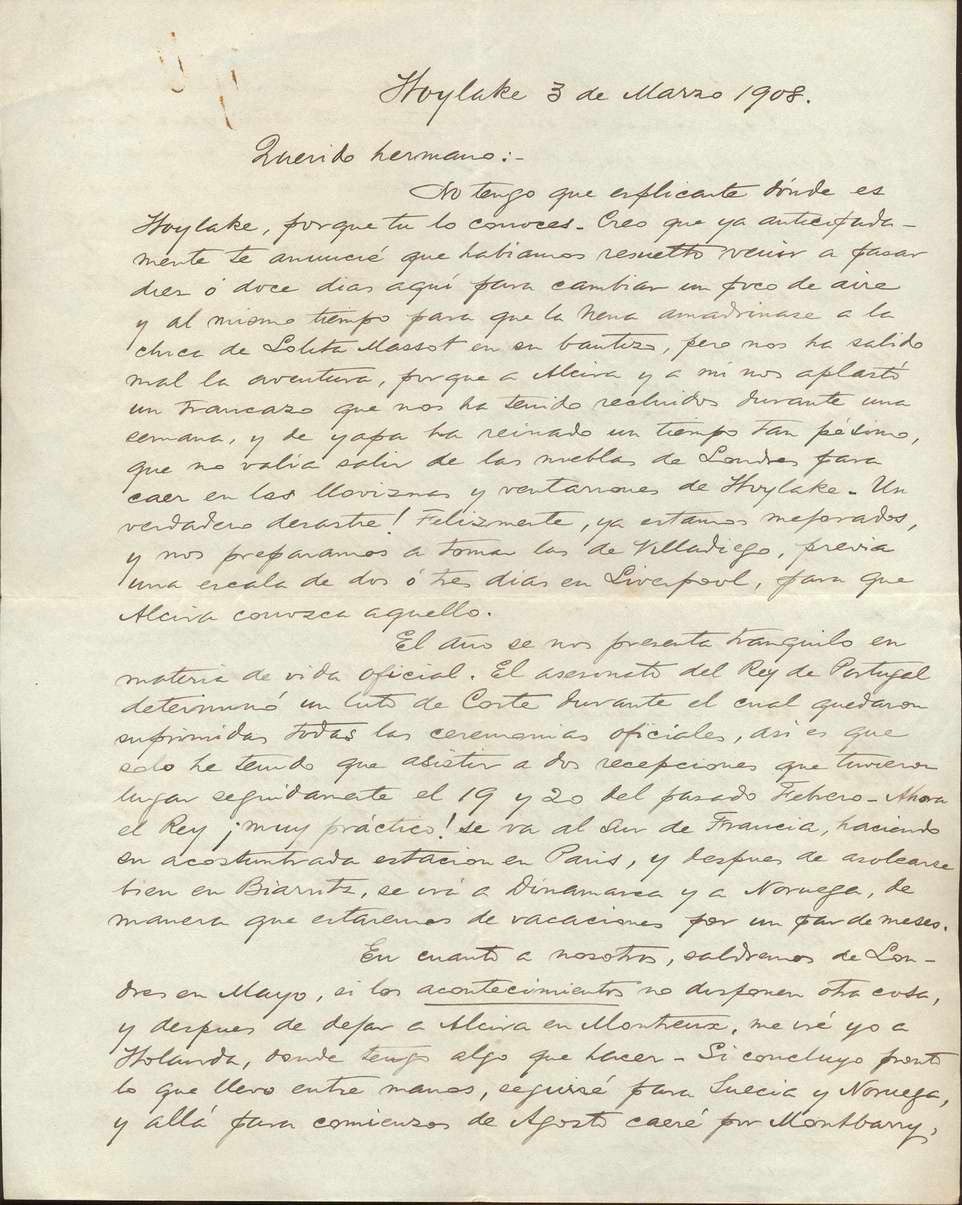 Hoylake 3 de Marzo 1908.
Querido hermano:-
No tengo que esplicarte dónde es
Hoylake, porque tu lo conoces - Creo que ya anticipada-
mente te anuncié que habiamos resuelto venir a pasar
diez ó doce dias aquí para cambiar un poco de aire
y al mismo tiempo para que la Nena amadrinase a la
chica de Lolita Massot en su bautizo, pero nos ha salido
mal la aventura, porque a Alcira y a mi nos aplastó
un trancazo que nos ha tenido recluidos durante una
semana, y de yapa ha reinado un tiempo tan pésimo,
que no valia salir de las nieblas de Londres para
caer en las lloviznas y ventarrones de Hoylake - Un
verdadero desastre! Felizmente, ya estamos mejorados,
y nos preparamos a tomar las de Villadiego, previa
una escala de dos ó tres dias en Liverpool, para que
Alcira conozca aquello.
El año se nos presenta tranquilo en
materia de vida oficial. El asesinato del Rey de Portugal
determinó un luto de Corte durante el cual quedaron
suprimidas todas las ceremonias oficiales, asi es que
solo he tenido que asistir a dos recepciones que tuvieron
lugar seguidamente el 19 y 20 del pasado Febrero - Ahora
el Rey ¡muy práctico! se va al Sur de Francia, haciendo
su acostumbrada estacion en Paris, y despues de asolearse
bien en Biarritz, se irá a Dinamarca y a Noruega, de
manera que estaremos de vacaciones por un par de meses.
En cuanto a nosotros, saldremos de Lon-
dres en Mayo, si los acontecimientos no disponen otra cosa,
y despues de dejar a Alcira en Montreux, me iré yo a
Holanda, donde tengo algo que hacer - Si concluyo pronto
lo que llevo entre manos, seguiré para Suecia y Noruega,
y allá para comienzos de Agosto caeré por Montbarry,